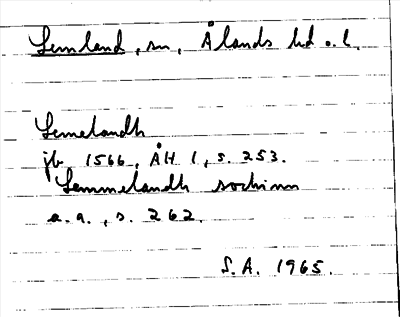 Lemland, sn, Ålands hd o. l.
Lemelandh
jb 1566, ÅH 1, s. 253.
Lemmelandh sochnn
a.a., s. 262.
S.A. 1965.